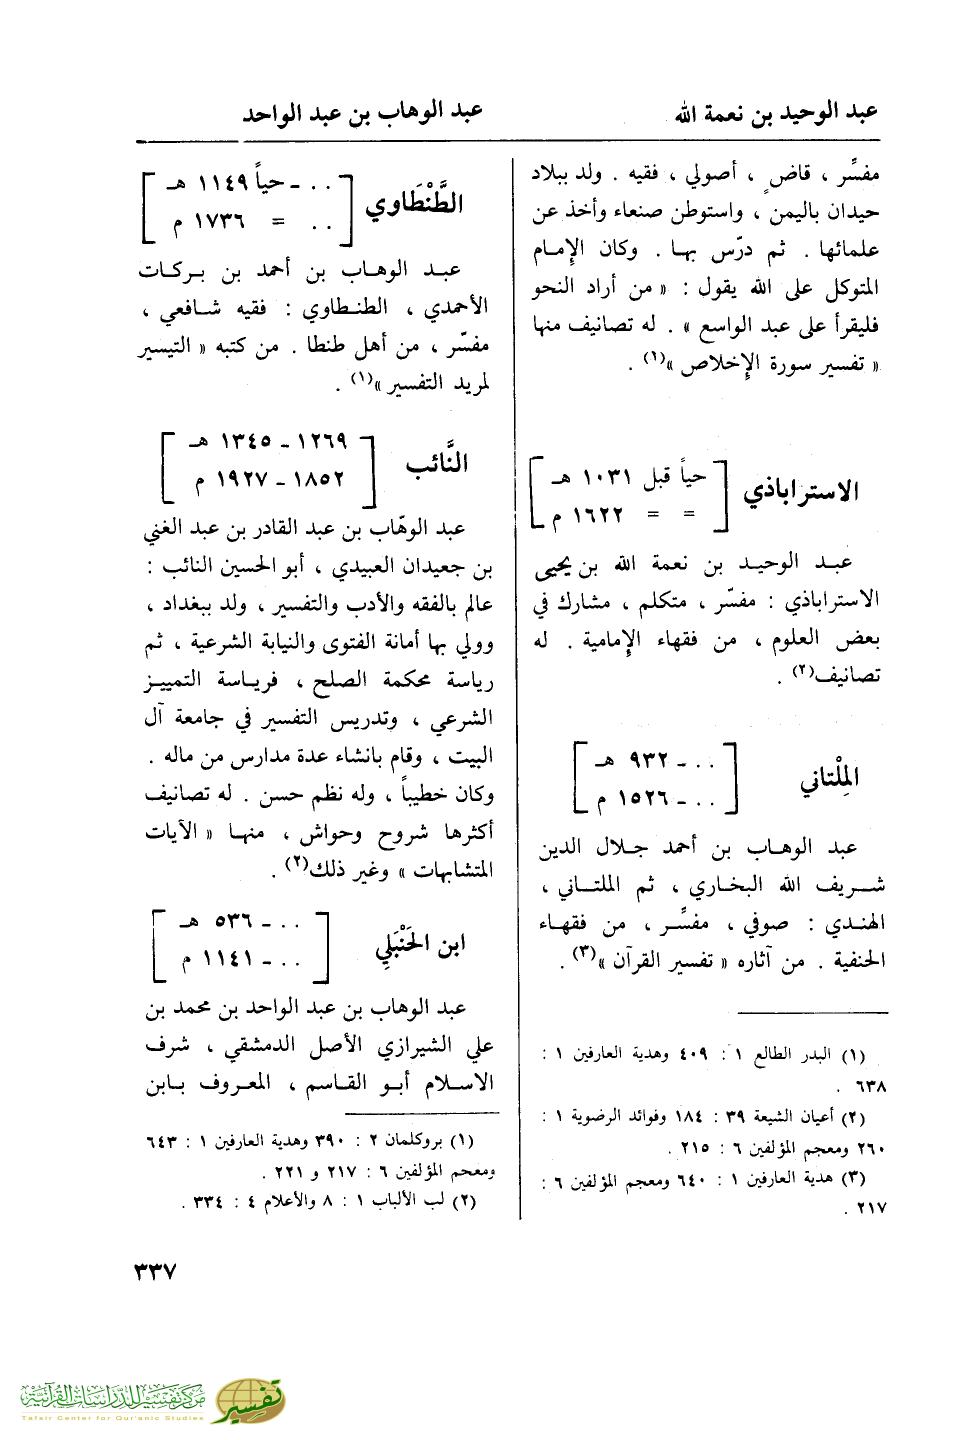 عبد الوحيد بن نعمة الله
عبد الوهاب بن عبد الواحد
مفسِّر ، قاضٍ ، أصولي ، فقيه . ولد ببلاد
حيدان باليمن ، واستوطن صنعاء وأخذ عن
علمائها . ثم درّس بها . وكان الإمام
المتوكل على الله يقول : « من أراد النحو
فليقرأ على عبد الواسع » . له تصانيف منها
« تفسير سورة الإخلاص »(١) .
الاستراباذي
[ حياً قبل ١٠٣١ هـ
= = ١٦٢٢ م ]
عبد الوحيد بن نعمة الله بن يحيى
الاستراباذي : مفسّر ، متكلم ، مشارك في
بعض العلوم ، من فقهاء الإمامية . له
تصانيف(٢) .
المِلْتاني
[ . . ـ ٩٣٢ هـ
. . ـ ١٥٢٦ م ]
عبد الوهاب بن أحمد جلال الدين
شريف الله البخاري ، ثم الملتاني ،
الهندي : صوفي ، مفسِّر ، من فقهاء
الحنفية . من آثاره « تفسير القرآن »(٣) .
(١) البدر الطالع ١ : ٤٠٩ وهدية العارفين ١ :
٦٣٨ .
(٢) أعيان الشيعة ٣٩ : ١٨٤ وفوائد الرضوية ١ :
٢٦٠ ومعجم المؤلفين ٦ : ٢١٥ .
(٣) هدية العارفين ١ : ٦٤٠ ومعجم المؤلفين ٦ :
٢١٧ .
الطَّنْطَاوي
[ . . ـ حياً ١١٤٩ هـ
. . = ١٧٣٦ م ]
عبد الوهاب بن أحمد بن بركات
الأحمدي ، الطنطاوي : فقيه شافعي ،
مفسّر ، من أهل طنطا . من كتبه « التيسير
لمريد التفسير »(١) .
النَّائب
[ ١٢٦٩ ـ ١٣٤٥ هـ
١٨٥٢ ـ ١٩٢٧ م ]
عبد الوهّاب بن عبد القادر بن عبد الغني
بن جعيدان العبيدي ، أبو الحسين النائب :
عالم بالفقه والأدب والتفسير ، ولد ببغداد ،
وولي بها أمانة الفتوى والنيابة الشرعية ، ثم
رياسة محكمة الصلح ، فرياسة التمييز
الشرعي ، وتدريس التفسير في جامعة آل
البيت ، وقام بانشاء عدة مدارس من ماله .
وكان خطيباً ، وله نظم حسن . له تصانيف
أكثرها شروح وحواش ، منها « الآيات
المتشابهات » وغير ذلك(٢) .
ابن الحَنْبَلِي
[ . . ـ ٥٣٦ هـ
. . ـ ١١٤١ م ]
عبد الوهاب بن عبد الواحد بن محمد بن
علي الشيرازي الأصل الدمشقي ، شرف
الاسلام أبو القاسم ، المعروف بابن
(١) بروكلمان ٢ : ٣٩٠ وهدية العارفين ١ : ٦٤٣
ومعجم المؤلفين ٦ : ٢١٧ و ٢٢١ .
(٢) لب الألباب ١ : ٨ والأعلام ٤ : ٣٣٤ .
٣٣٧
مركز تفسير للدراسات القرآنية
Tafsir Center for Qur'anic Studies
تفسير